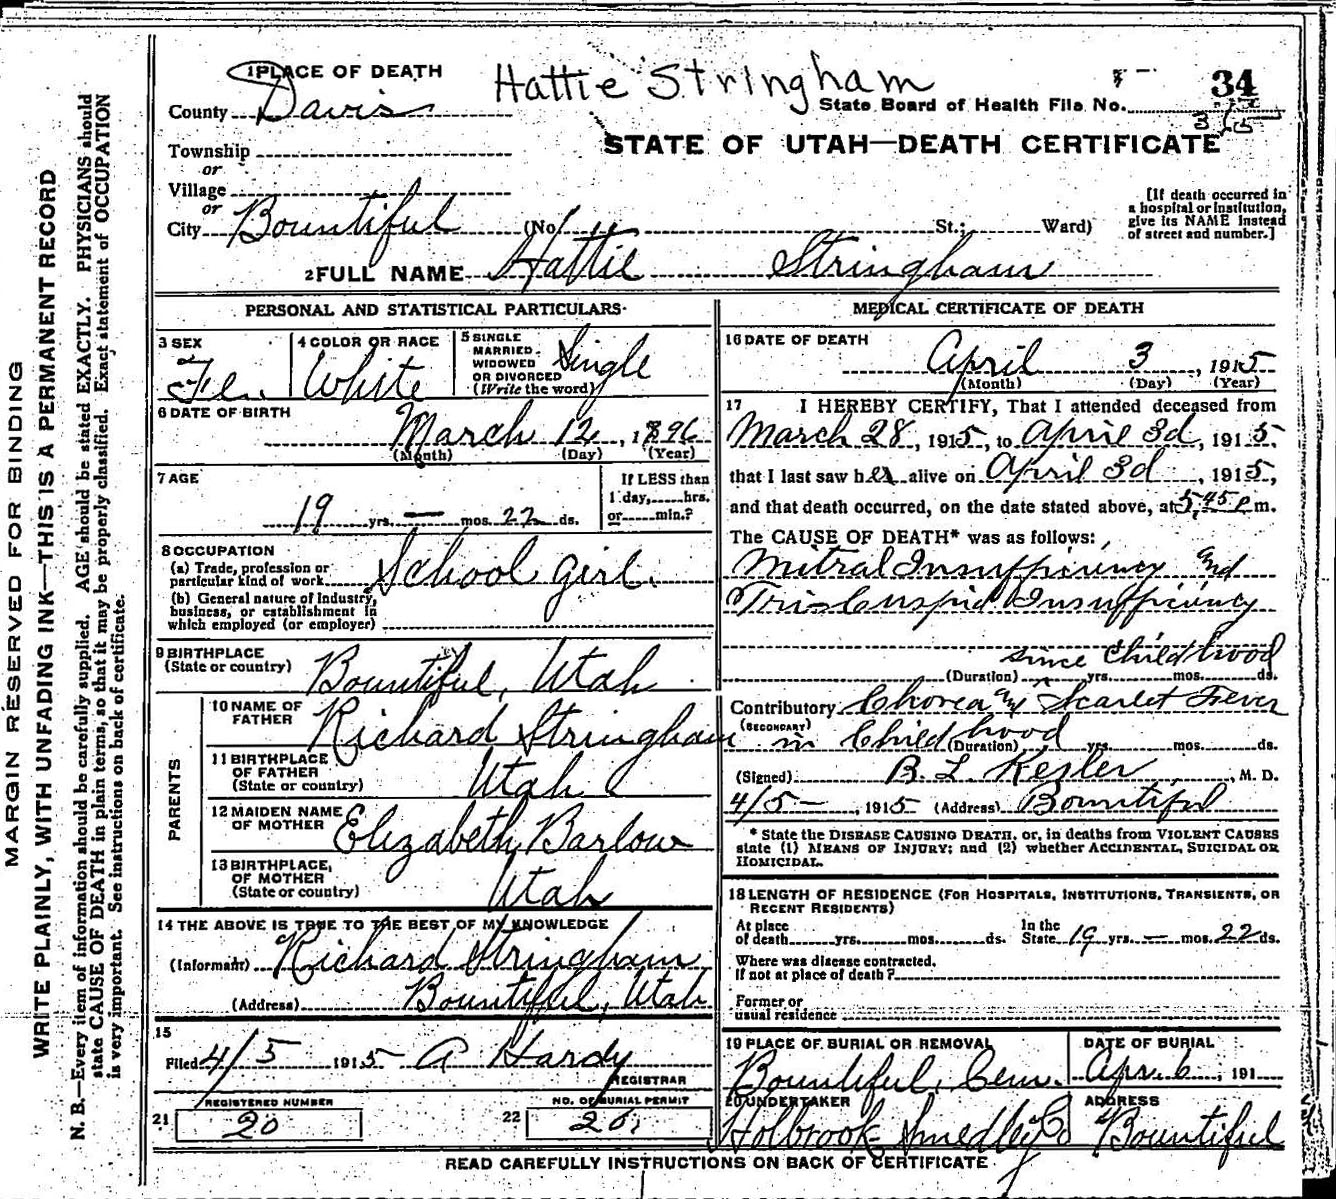 1 PLACE OF DEATH
Hattie Stringham
34
County Davis
State Board of Health File No.
STATE OF UTAH—DEATH CERTIFICATE
Township
or
Village
or
City Bountiful (No. St.; Ward)
[If death occurred in
a hospital or institution,
give its NAME instead
of street and number.]
2 FULL NAME Hattie Stringham
PERSONAL AND STATISTICAL PARTICULARS
3 SEX
Fe.
4 COLOR OR RACE
White
5 SINGLE
MARRIED
WIDOWED
OR DIVORCED
(Write the word)
Single
6 DATE OF BIRTH
March 12, 1896
(Month) (Day) (Year)
7 AGE
19 yrs. — mos. 22 ds.
If LESS than
1 day, hrs.
or min.?
8 OCCUPATION
(a) Trade, profession or
particular kind of work School girl.
(b) General nature of Industry,
business, or establishment in
which employed (or employer)
9 BIRTHPLACE
(State or country)
Bountiful, Utah
PARENTS
10 NAME OF
FATHER
Richard Stringham
11 BIRTHPLACE
OF FATHER
(State or country)
Utah
12 MAIDEN NAME
OF MOTHER
Elizabeth Barlow
13 BIRTHPLACE,
OF MOTHER
(State or country)
Utah
14 THE ABOVE IS TRUE TO THE BEST OF MY KNOWLEDGE
(Informant) Richard Stringham
(Address) Bountiful, Utah
15
Filed 4/5 1915 A Hardy
REGISTRAR
REGISTERED NUMBER
21 20
NO. OF BURIAL PERMIT
22 20.
MEDICAL CERTIFICATE OF DEATH
16 DATE OF DEATH
April 3, 1915
(Month) (Day) (Year)
17 I HEREBY CERTIFY, That I attended deceased from
March 28, 1915, to April 3d, 1915,
that I last saw her alive on April 3d, 1915,
and that death occurred, on the date stated above, at 5,45 P m.
The CAUSE OF DEATH* was as follows:
Mitral Insufficiency and
Insufficiency
since Childhood
(Duration) yrs. mos. ds.
Contributory Chorea and Scarlet Fever
(SECONDARY)
in Childhood
(Duration) yrs. mos. ds.
(Signed) B. L. Kesler, M. D.
4/5—, 1915 (Address) Bountiful
* State the DISEASE CAUSING DEATH, or, in deaths from VIOLENT CAUSES
state (1) MEANS OF INJURY; and (2) whether ACCIDENTAL, SUICIDAL OR
HOMICIDAL.
18 LENGTH OF RESIDENCE (FOR HOSPITALS, INSTITUTIONS, TRANSIENTS, OR
RECENT RESIDENTS)
At place
of death yrs. mos. ds.
In the
State 19 yrs. — mos. 22 ds.
Where was disease contracted,
if not at place of death?
Former or
usual residence
19 PLACE OF BURIAL OR REMOVAL
Bountiful, Cem.
DATE OF BURIAL
Apr. 6, 191
20 UNDERTAKER
Holbrook Smedley Co
ADDRESS
Bountiful
READ CAREFULLY INSTRUCTIONS ON BACK OF CERTIFICATE
MARGIN RESERVED FOR BINDING
WRITE PLAINLY, WITH UNFADING INK—THIS IS A PERMANENT RECORD
N. B.—Every item of information should be carefully supplied. AGE should be stated EXACTLY. PHYSICIANS should
state CAUSE OF DEATH in plain terms, so that it may be properly classified. Exact statement of OCCUPATION
is very important. See instructions on back of certificate.